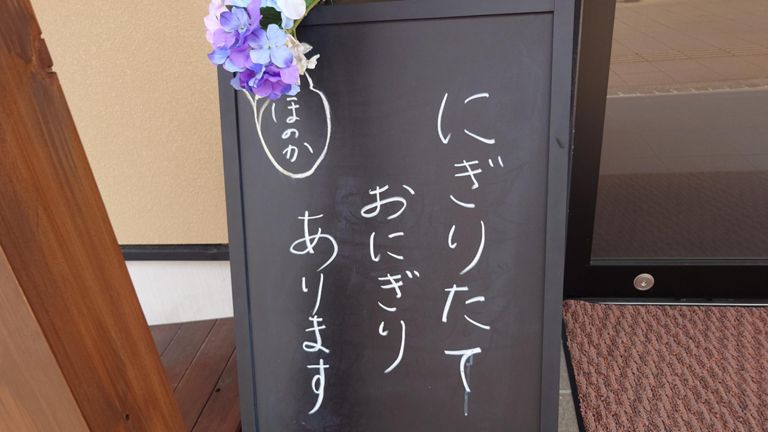 にぎりたて
おにぎり
あります
ほのか